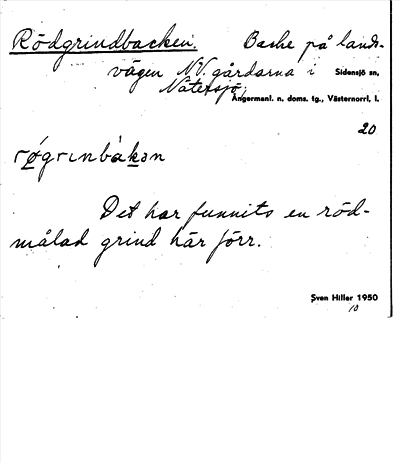 Rödgrindbacken. Backe på lands-
vägen NV. gårdarna i Sidensjö sn,
Nätersjö,
Ångermanl. n. doms. tg., Västernorrl. l.
20
rø̀grɩnbàkən
Det har funnits en röd-
målad grind här förr.
Sven Hiller 1950
10